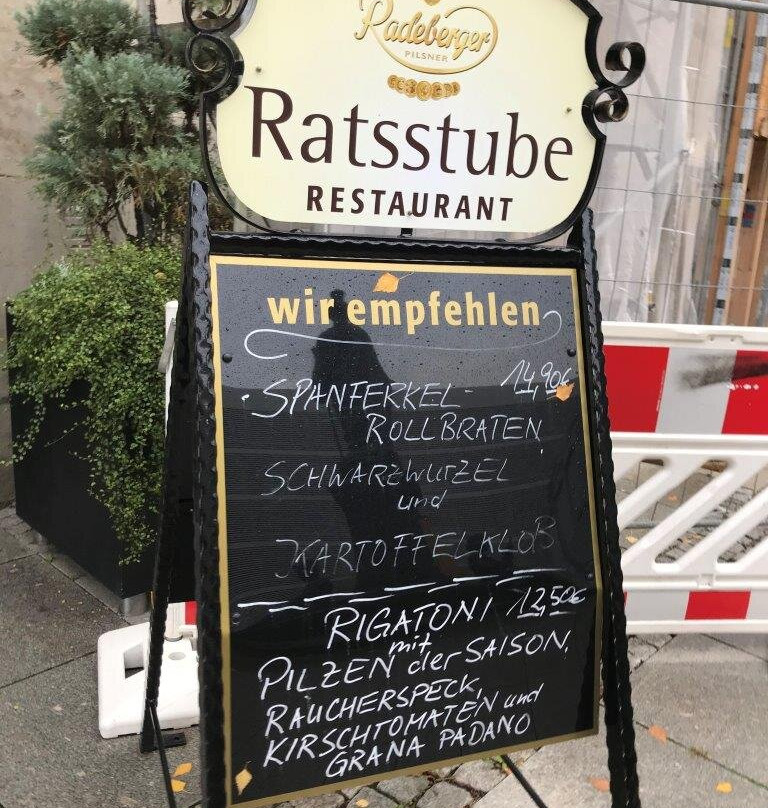 Radeberger
PILSNER
Ratsstube
RESTAURANT
wir empfehlen
· SPANFERKEL- 14,90€
ROLLBRATEN,
SCHWARZWURZEL
und
KARTOFFELKLOß
RIGATONI 12,50€
mit
PILZEN der SAISON,
RAUCHERSPECK,
KIRSCHTOMATEN und
GRANA PADANO